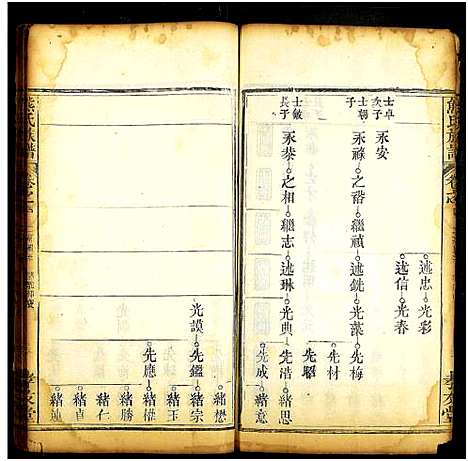 熊氏族譜
卷之
孝友堂
述忠
光彩
述信
光春
士卓次子
永安
士朝子
永祿
之蕃
繼禎
述銑
光藻
先梅
先材
士敏長子
永泰
之相
繼志
述琳
光典
先浩
緒思
先郘
先成
緒意
光謨
先鑑
緒宗
緒懋
先應
緒權
緒玉
緒勝
緒仁
緒貞
緒連
熊氏族譜
卷之